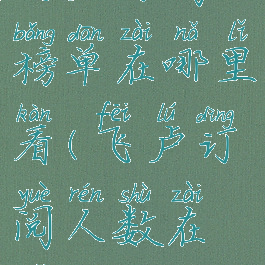 bǎng dān zài nǎ lǐ
榜单在哪里
kàn fēi lú dìng
看(飞卢订
yuè rén shù zài
阅人数在